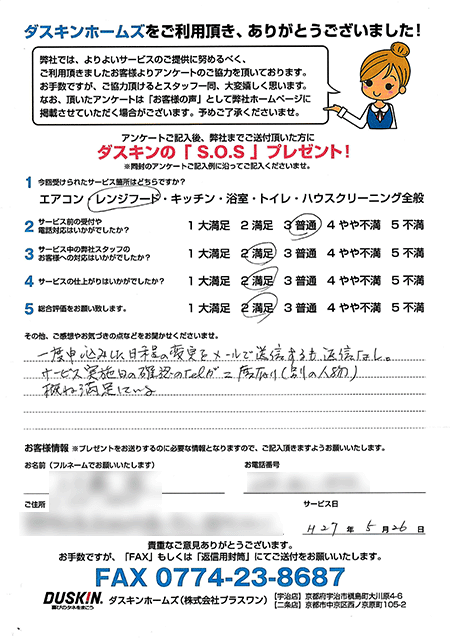 ダスキンホームズをご利用頂き、ありがとうございました！
弊社では、よりよいサービスのご提供に努めるべく、
ご利用頂きましたお客様よりアンケートのご協力を頂いております。
お手数ですが、ご協力頂けるとスタッフ一同、大変嬉しく思います。
なお、頂いたアンケートは「お客様の声」として弊社ホームページに
掲載させていただく場合がございます。予めご了承くださいませ。
アンケートご記入後、弊社までご送付頂いた方に
ダスキンの「 S.O.S 」プレゼント！
※同封のアンケートご記入例に沿ってご記入くださいませ。
1 今回受けられたサービス箇所はどちらですか？
エアコン・レンジフード・キッチン・浴室・トイレ・ハウスクリーニング全般
2 サービス前の受付や
電話対応はいかがでしたか？ 1 大満足 2 満足 3 普通 4 やや不満 5 不満
3 サービス中の弊社スタッフの
お客様への対応はいかがでしたか？ 1 大満足 2 満足 3 普通 4 やや不満 5 不満
4 サービスの仕上がりはいかがでしたか？ 1 大満足 2 満足 3 普通 4 やや不満 5 不満
5 総合評価をお願い致します。 1 大満足 2 満足 3 普通 4 やや不満 5 不満
その他、ご感想やお気づきの点などをお聞かせくださいませ。
一度申込みした日程の変更をメールで送信するも返信なし。
サービス実施日の確認のTelが二度あり(別の人物)
概ね満足している
お客様情報 ※プレゼントをお送りするのに必要な情報となりますので、ご記入頂きますようお願いいたします。
お名前（フルネームでお願いいたします） お電話番号
ご住所 サービス日
H27 年 5 月 26 日
貴重なご意見ありがとうございます。
お手数ですが、「FAX」もしくは「返信用封筒」にてご送付をお願いいたします。
FAX 0774-23-8687
DUSKIN 喜びのタネをまこう ダスキンホームズ（株式会社プラスワン） 【宇治店】京都府宇治市槇島町大川原4-6
【二条店】京都市中京区西ノ京原町105-2